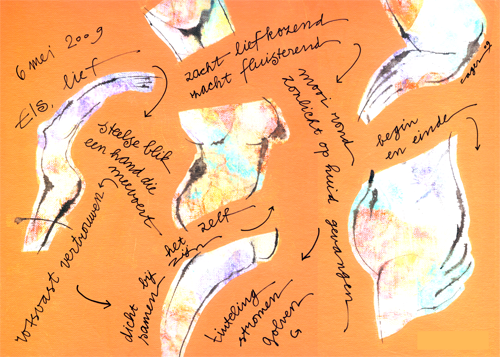 6 mei 2009
Els, lief
zacht liefkozend
macht fluisterend
mooi rond
zonlicht op huid gevangen
begin
en einde
steelse blik
een hand die
meevoert
rotsvast vertrouwen
het zelf
zijn
dicht bij
samen
tinteling
stromen
golven